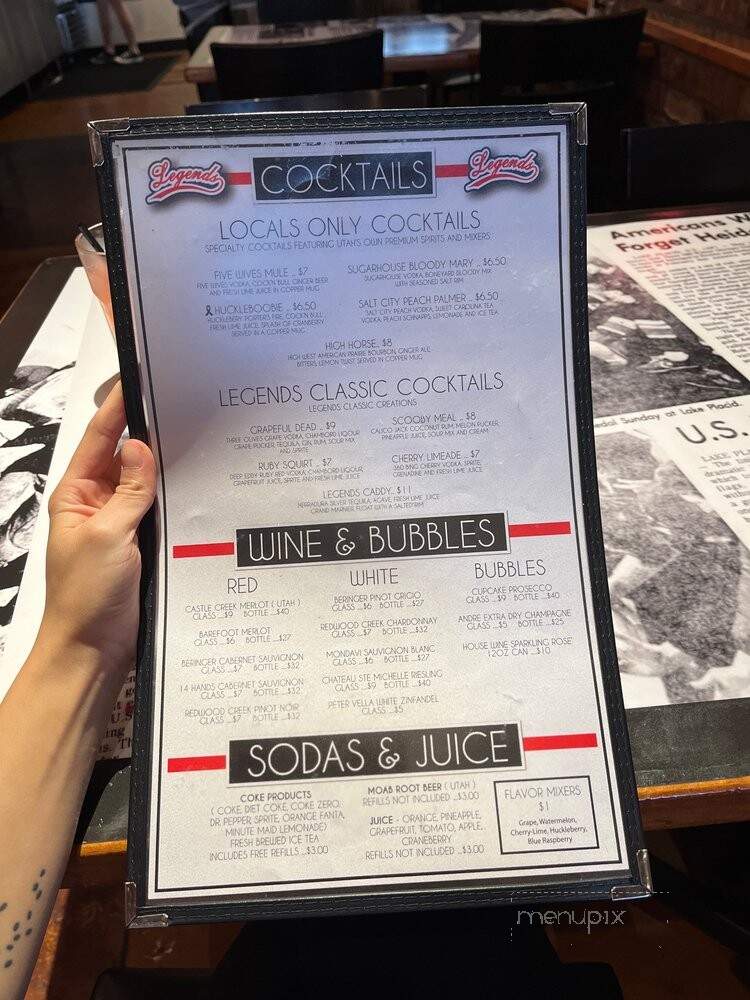 Legends COCKTAILS Legends
LOCALS ONLY COCKTAILS
SPECIALTY COCKTAILS FEATURING UTAH'S OWN PREMIUM SPIRITS AND MIXERS
FIVE WIVES MULE ... $7
FIVE WIVES, VODKA, COCK'N BULL GINGER BEER
AND FRESH LIME JUICE IN COPPER MUG
SUGARHOUSE BLOODY MARY ... $6.50
SUGARHOUSE VODKA, BONEYARD BLOODY MIX
WITH SEASONED SALT RIM
HUCKLEBOOBIE ... $6.50
HUCKLEBERRY PORTER'S FIRE, COCK'N BULL,
FRESH LIME JUICE, SPLASH OF CRANBERRY
SERVED IN A COPPER MUG
SALT CITY PEACH PALMER ... $6.50
SALT CITY PEACH VODKA, SWEET CAROLINA TEA
VODKA, PEACH SCHNAPPS, LEMONADE AND ICE TEA
HIGH HORSE.. $8
HIGH WEST AMERICAN PRAIRIE BOURBON, GINGER ALE,
BITTERS, LEMON TWIST SERVED IN COPPER MUG
LEGENDS CLASSIC COCKTAILS
LEGENDS CLASSIC CREATIONS
GRAPEFUL DEAD ... $9
THREE OLIVES GRAPE VODKA, CHAMBORD LIQOUR
GRAPE PUCKER, TEQUILA, GIN, RUM, SOUR MIX
AND SPRITE
SCOOBY MEAL ... $8
CALICO JACK COCONUT RUM, MELON PUCKER,
PINEAPPLE JUICE, SOUR MIX AND CREAM
RUBY SQUIRT ... $7
DEEP EDDY RUBY RED VODKA, CHAMBORD LIQOUR,
GRAPEFRUIT JUICE, SPRITE AND FRESH LIME JUICE
CHERRY LIMEADE ... $7
360 BING CHERRY VODKA, SPRITE,
GRENADINE AND FRESH LIME JUICE
LEGENDS CADDY... $11
HERRADURA SILVER TEQUILA, AGAVE, FRESH LIME JUICE
GRAND MARNIER FLOAT WITH A SALTED RIM
WINE & BUBBLES
RED
CASTLE CREEK MERLOT ( UTAH )
GLASS ...$9 BOTTLE ...$40
BAREFOOT MERLOT
GLASS ...$6 BOTTLE ...$27
BERINGER CABERNET SAUVIGNON
GLASS ...$7 BOTTLE ...$32
14 HANDS CABERNET SAUVIGNON
GLASS ...$7 BOTTLE ...$32
REDWOOD CREEK PINOT NOIR
GLASS ...$7 BOTTLE ...$32
WHITE
BERINGER PINOT GRIGIO
GLASS ...$6 BOTTLE ...$27
REDWOOD CREEK CHARDONNAY
GLASS ...$7 BOTTLE ...$32
MONDAVI SAUVIGNON BLANC
GLASS ...$6 BOTTLE ...$27
CHATEAU STE MICHELLE RIESLING
GLASS ...$9 BOTTLE ...$40
PETER VELLA WHITE ZINFANDEL
GLASS ...$5
BUBBLES
CUPCAKE PROSECCO
GLASS ...$9 BOTTLE ...$40
ANDRE EXTRA DRY CHAMPAGNE
GLASS ...$5 BOTTLE ...$25
HOUSE WINE SPARKLING ROSE'
12OZ CAN ...$10
SODAS & JUICE
COKE PRODUCTS
( COKE, DIET COKE, COKE ZERO,
DR. PEPPER, SPRITE, ORANGE FANTA,
MINUTE MAID LEMONADE)
FRESH BREWED ICE TEA
INCLUDES FREE REFILLS ...$3.00
MOAB ROOT BEER ( UTAH )
REFILLS NOT INCLUDED ...$3.00
JUICE - ORANGE, PINEAPPLE,
GRAPEFRUIT, TOMATO, APPLE,
CRANEBERRY
REFILLS NOT INCLUDED ...$3.00
FLAVOR MIXERS
$1
Grape, Watermelon,
Cherry-Lime, Huckleberry,
Blue Raspberry
Americans W
Forget Heid
edal Sunday at Lake Placid.
U.S.
LAKE PL
menupix